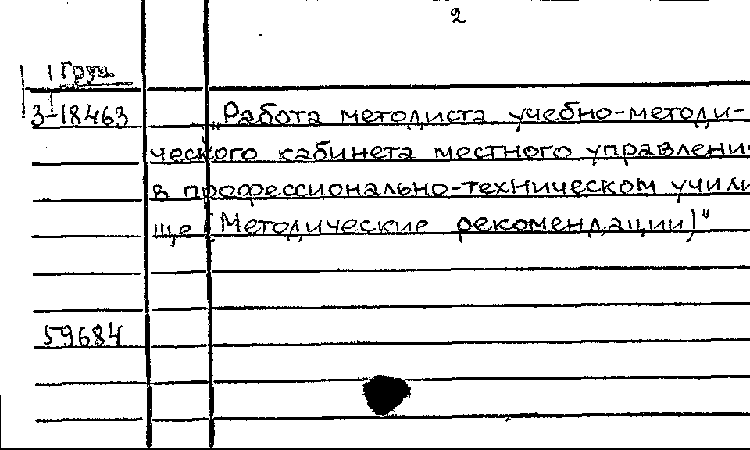 2
Груз
3-18463
„Работа методиста учебно-методи-
ческого кабинета местного управлени
в профессионально-техническом учили
ще (Методические рекомендации)"
59684